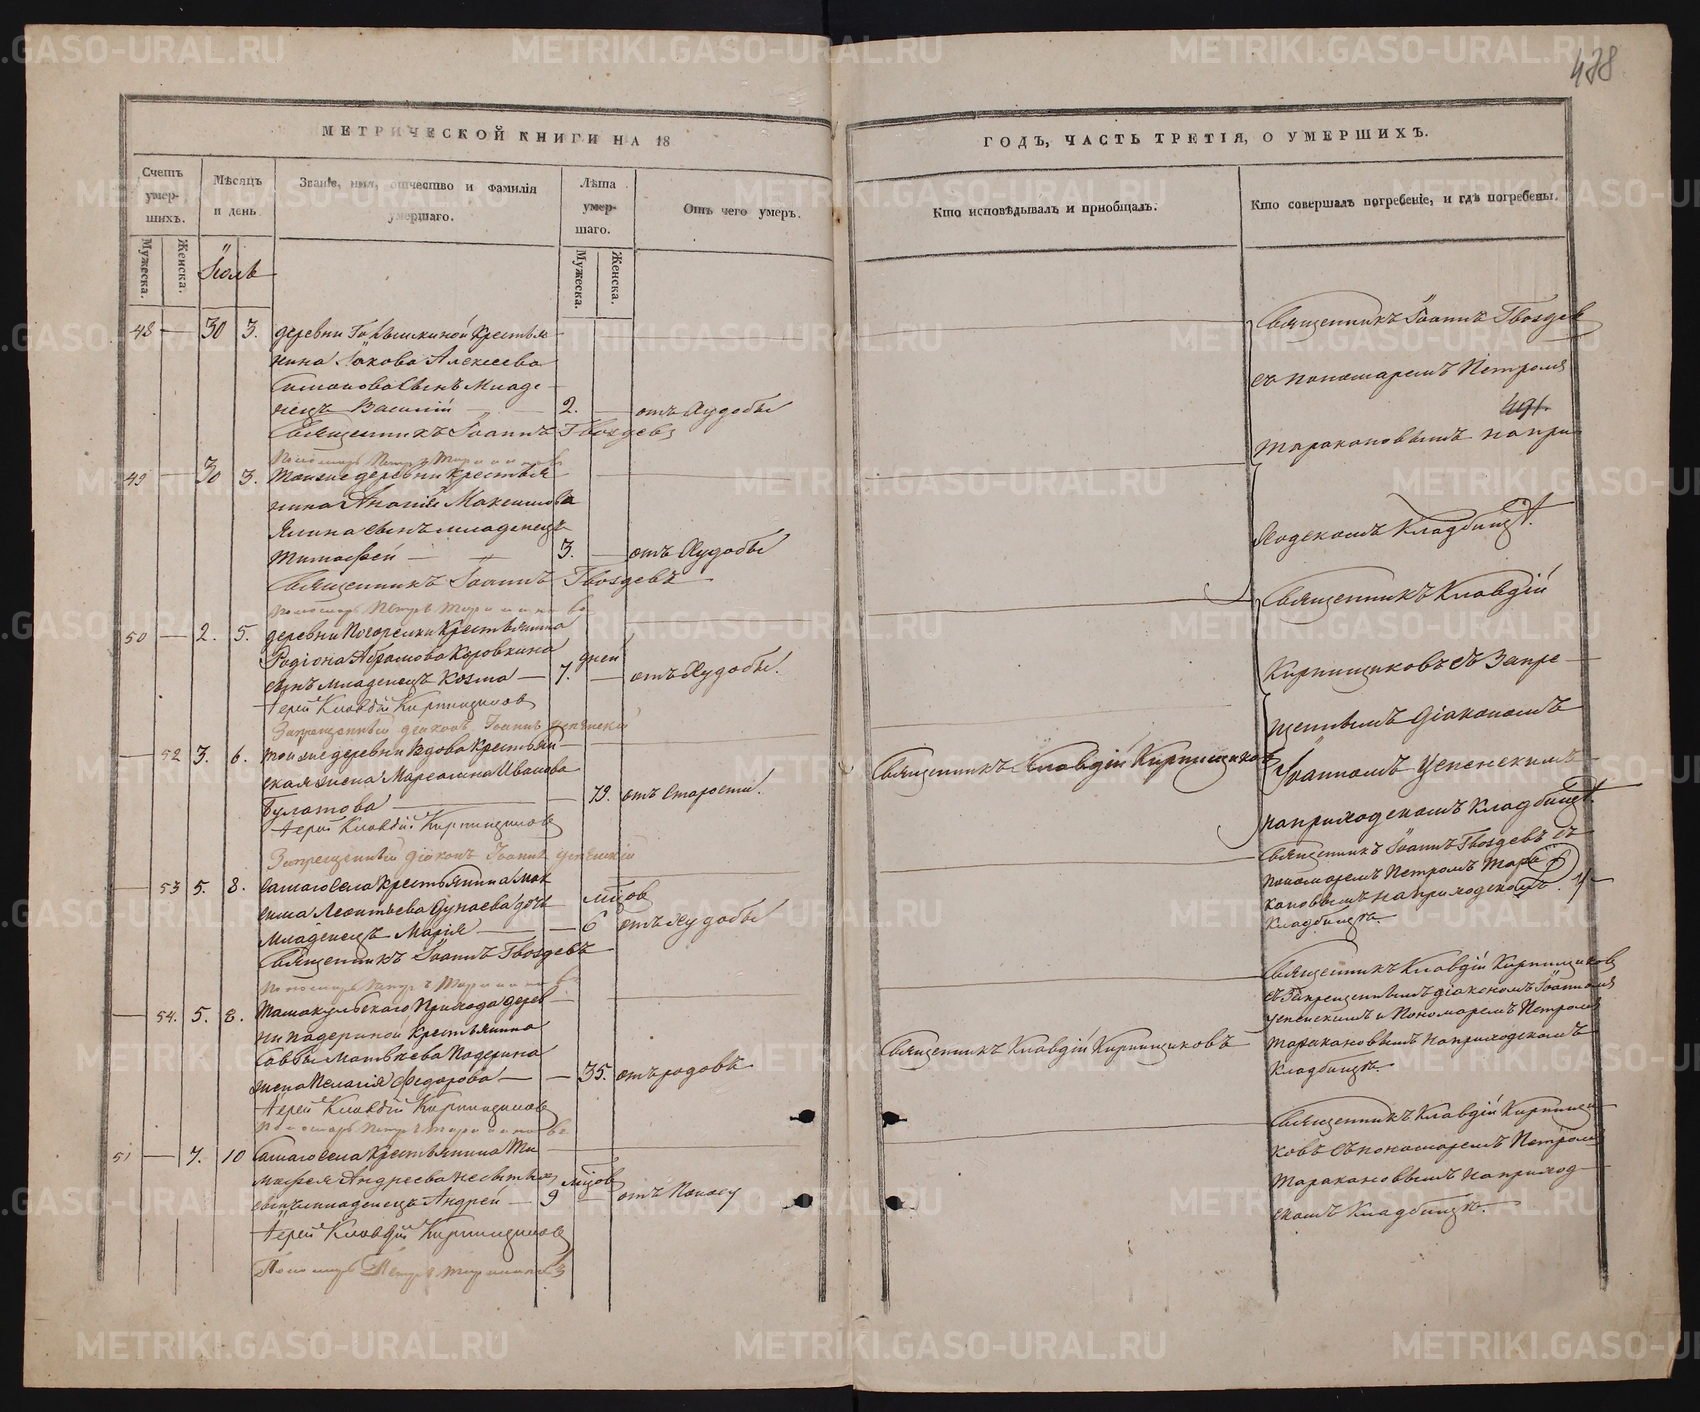 478
МЕТРИЧЕСКОЙ КНИГИ НА 18
ГОДЪ, ЧАСТЬ ТРЕТІЯ, О УМЕРШИХЪ.
Счетъ умер- шихъ.
Мѣсяцъ и день
Званіе, имя, отчество и фамилія умершаго.
Лѣта умер- шаго.
Отъ чего умеръ.
Кто исповѣдывалъ и пріобщалъ.
Кто совершалъ погребеніе, и гдѣ погребены.
Мужеска.
Женска.
Мужеска.
Женска.
Іюль
48 — 30 3. деревни крестья
нина Іакова Алексеева
сынъ Младе
нецъ Василій — 2. — отъ Худобы
Священникъ Іоаннъ Гвоздевъ
Пономарь Петръ Таракановъ
49 — 30 3. тойже деревни крестья
нина Максимова
Ялина сынъ младенецъ
Тимофей — 3. — отъ Худобы
Священникъ Іоаннъ Гвоздевъ
Пономарь Петръ Таракановъ
50 — 2. 5. деревни Погорелки крестьянина
Родіона Абрамова Коровкина дней
сынъ младенецъ Козма — 7. — отъ Худобы.
Іерей Клавдій Кирпищиковъ
Запрещенный діаконъ Іоаннъ Успенскій
— 52 3. 6. тойже деревни вдова крестьян-
ская жена Маремьяна Иванова
Булатова — 79. отъ Старости.
Іерей Клавдій Кирпищиковъ
Запрещенный діаконъ Іоаннъ Успенскій
— 53 5. 8. самаго села крестьянина Мак
сима Леонтьева Дунаева дочь мѣсцов
Младенецъ Марія — 6 отъ Худобы
Священникъ Іоаннъ Гвоздевъ
Пономарь Петръ Таракановъ
— 54. 5. 8. Тамакульскаго Прихода дерев
ни Падериной крестьянина
Саввы Матвѣева Падерина
жена Пелагія Федорова — 35. отъ родовъ
Іерей Клавдій Кирпищиковъ
Пономарь Петръ Таракановъ
51 — 7. 10 самаго села крестьянина Ти
мофея Андреева мѣсцов
сынъ младенецъ Андрей — 9 — отъ Поносу
Іерей Клавдій Кирпищиковъ
Пономарь Петръ Таракановъ
Священникъ Клавдій Кирпищиковъ
Священникъ Клавдій Кирпищиковъ
Священникъ Іоаннъ Гвоздев
съ пономаремъ Петромъ
491.
Таракановымъ на при
ходскомъ Кладбищѣ.
Священникъ Клавдій
Кирпищиковъ съ Запре-
щеннымъ Діакономъ
Іоанномъ Успенскимъ
на приходскомъ кладбищѣ.
Священникъ Іоаннъ Гвоздевъ съ
пономаремъ Петромъ Тара
кановымъ на приходскомъ
Кладбищѣ.
Священникъ Клавдій Кирпищиковъ
съ Запрещеннымъ діакономъ Іоанномъ
Успенскимъ и Пономаремъ Петромъ
Таракановымъ на приходскомъ
Кладбищѣ.
Священникъ Клавдій Кирпищи
ковъ съ пономаремъ Петромъ
Таракановымъ на приход-
скомъ Кладбищѣ.
METRIKI.GASO-URAL.RU